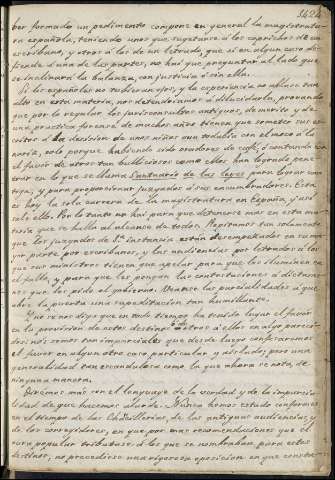 3424
ber formado un pedimento, compone en general la magistratu-
ra española, teniendo unos que sugetarse á los caprichos de un
escribano, y otros á los de un letrado, que si en algun caso de-
fiende á una de las partes, no hai que preguntar al lado que
se inclinará la balanza, con justicia ó sin ella.
Si los españoles no tubieran ojos, y la esperiencia no hablase tan
alto en esta materia, nos detendriamos á dilucidarla, probando
que por lo regular los jurisconsultos antiguos, de merito y de
una practica forense de muchos años tienen que someter sus es-
critos á la decision de unos niños aun todavia con el moco á la
nariz, solo porque habiendo sido oradores de café, ó contando con
el favor de otros tan bulliciosos como ellos han logrado pene-
trar en lo que se llama Santuario de las leyes para lograr una
y para proporcionar juzgados á sus encumbradores. Esta
es hoy la sola carrera de la magistratura en España, y es
solo ella. Por lo tanto no hai para que detenerse mas en esta ma-
teria que se halla al alcance de todos. Repetimos tan solamente
que los juzgados de 1ª instancia están desempeñados en su ma-
yor parte por escribanos, y las audiencias por letrados á los
que sus ministros tienen que apelar para que los iluminen en
el fallo, y para que les pongan las contestaciones á dictame-
nes que les pide el gobierno. Veanse las parcialidades á que
abre la puerta una supeditacion tan humillante.
Que se nos diga que en todo tiempo ha tenido lugar el favor
en la provision de estos destinos ó de otros á ellos en algo pareci-
dos: no somos tan imparciales que desde luego confesaremos
el favor en algun otro caso particular y aislado; pero una
generalidad tan escandalosa como la que ahora se nota, de
ninguna manera.
Diremos mas con el lenguage de la verdad y de la imparcia-
lidad de que hacemos alarde. Nunca hemos estado conformes
en el tiempo de las Chancillerias, de las antiguas audiencias, y
de los corregidores, en que por mas recomendaciones que el
aura popular tributase á los que se nombraban para estos
destinos, no precediese una rigorosa oposicion en que consta-